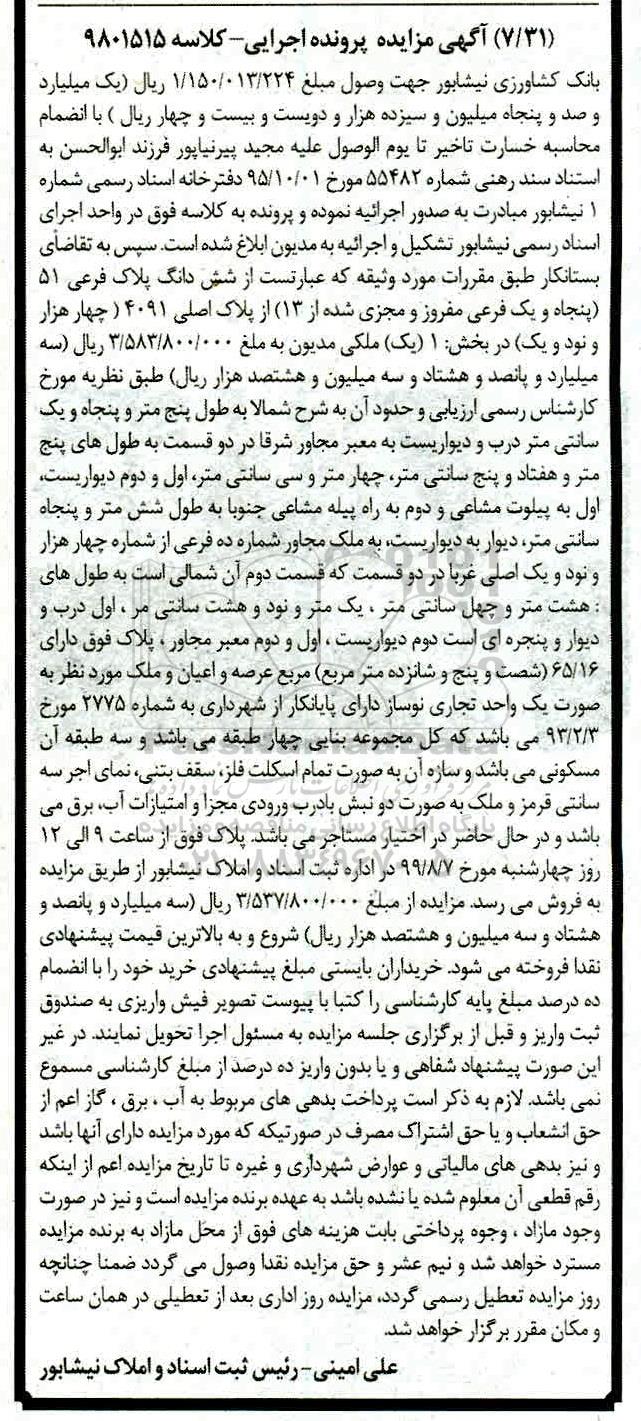 (۷/۳۱) آگهی مزایده پرونده اجرایی- کلاسه ۹۸۰۱۵۱۵
بانک کشاورزی نیشابور جهت وصول مبلغ ۱/۱۵۰/۰۱۳/۲۲۴ ریال (یک میلیارد
و صد و پنجاه میلیون و سیزده هزار و دویست و بیست و چهار ریال ) با انضمام
محاسبه خسارت تاخیر تا یوم الوصول علیه مجید پیرنیاپور فرزند ابوالحسن به
استناد سند رهنی شماره ۵۵۴۸۲ مورخ ۹۵/۱۰/۰۱ دفترخانه اسناد رسمی شماره
۱ نیشابور مبادرت به صدور اجرائیه نموده و پرونده به کلاسه فوق در واحد اجرای
اسناد رسمی نیشابور تشکیل و اجرائیه به مدیون ابلاغ شده است. سپس به تقاضای
بستانکار طبق مقررات مورد وثیقه که عبارتست از شش دانگ پلاک فرعی ۵۱
(پنجاه و یک فرعی مفروز و مجزی شده از ۱۳) از پلاک اصلی ۴۰۹۱ ( چهار هزار
و نود و یک) در بخش: ۱ (یک) ملکی مدیون به ملغ ۳/۵۸۳/۸۰۰/۰۰۰ ریال (سه
میلیارد و پانصد و هشتاد و سه میلیون و هشتصد هزار ریال) طبق نظریه مورخ
کارشناس رسمی ارزیابی و حدود آن به شرح شمالا به طول پنج متر و پنجاه و یک
سانتی متر درب و دیواریست به معبر مجاور شرقا در دو قسمت به طول های پنج
متر و هفتاد و پنج سانتی متر، چهار متر و سی سانتی متر، اول و دوم دیواریست،
اول به پیلوت مشاعی و دوم به راه پیله مشاعی جنوبا به طول شش متر و پنجاه
سانتی متر، دیوار به دیواریست، به ملک مجاور شماره ده فرعی از شماره چهار هزار
و نود و یک اصلی غربا در دو قسمت که قسمت دوم آن شمالی است به طول های
: هشت متر و چهل سانتی متر ، یک متر و نود و هشت سانتی مر ، اول درب و
دیوار و پنجره ای است دوم دیواریست ، اول و دوم معبر مجاور ، پلاک فوق دارای
۶۵/۱۶ (شصت و پنج و شانزده متر مربع) مربع عرصه و اعیان و ملک مورد نظر به
صورت یک واحد تجاری نوساز دارای پایانکار از شهرداری به شماره ۲۷۷۵ مورخ
۹۳/۲/۳ می باشد که کل مجموعه بنایی چهار طبقه می باشد و سه طبقه آن
مسکونی می باشد و سازه آن به صورت تمام اسکلت فلز، سقف بتنی، نمای اجر سه
سانتی قرمز و ملک به صورت دو نبش بادرب ورودی مجزا و امتیازات آب، برق می
باشد و در حال حاضر در اختیار مستاجر می باشد. پلاک فوق از ساعت ۹ الی ۱۲
روز چهارشنبه مورخ ۹۹/۸/۷ در اداره ثبت اسناد و املاک نیشابور از طریق مزایده
به فروش می رسد. مزایده از مبلغ ۳/۵۳۷/۸۰۰/۰۰۰ ریال (سه میلیارد و پانصد و
هشتاد و سه میلیون و هشتصد هزار ریال) شروع و به بالاترین قیمت پیشنهادی
نقدا فروخته می شود. خریداران بایستی مبلغ پیشنهادی خرید خود را با انضمام
ده درصد مبلغ پایه کارشناسی را کتبا با پیوست تصویر فیش واریزی به صندوق
ثبت واریز و قبل از برگزاری جلسه مزایده به مسئول اجرا تحویل نمایند. در غیر
این صورت پیشنهاد شفاهی و یا بدون واریز ده درصد از مبلغ کارشناسی مسموع
نمی باشد. لازم به ذکر است پرداخت بدهی های مربوط به آب ، برق ، گاز اعم از
حق انشعاب و یا حق اشتراک مصرف در صورتیکه که مورد مزایده دارای آنها باشد
و نیز بدهی های مالیاتی و عوارض شهرداری و غیره تا تاریخ مزایده اعم از اینکه
رقم قطعی آن معلوم شده یا نشده باشد به عهده برنده مزایده است و نیز در صورت
وجود مازاد ، وجوه پرداختی بابت هزینه های فوق از محل مازاد به برنده مزایده
مسترد خواهد شد و نیم عشر و حق مزایده نقدا وصول می گردد ضمنا چنانچه
روز مزایده تعطیل رسمی گردد، مزایده روز اداری بعد از تعطیلی در همان ساعت
و مکان مقرر برگزار خواهد شد.
علی امینی- رئیس ثبت اسناد و املاک نیشابور